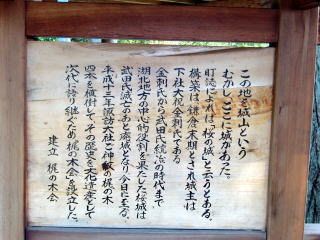 この地を城山という
むかし、ここに城があった。
町誌によれば「桜の城」と云うとある。
構築は、鎌倉末期とされ城主は
下社大祝金刺氏である
金刺氏から武田氏統治の時代まで
湖北地方の中心的役割を果たした桜城は
武田氏滅亡のあと廃城となり今日に至る。
平成十三年諏訪大社ご神紋の梶の木
四本を植樹して、その歴史を文化遺産として
次代に語り継ぐため「梶の木会」を設立した。
建立 梶の木会